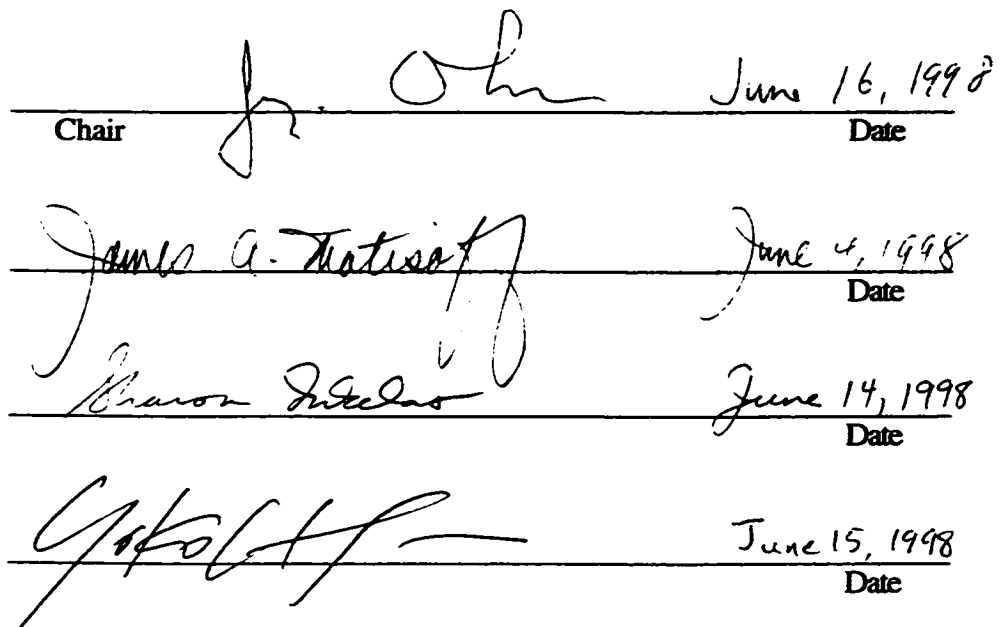 June 16, 1998
Chair Date
James A. Matisoff June 4, 1998
Date
Sharon June 14, 1998
Date
June 15, 1998
Date